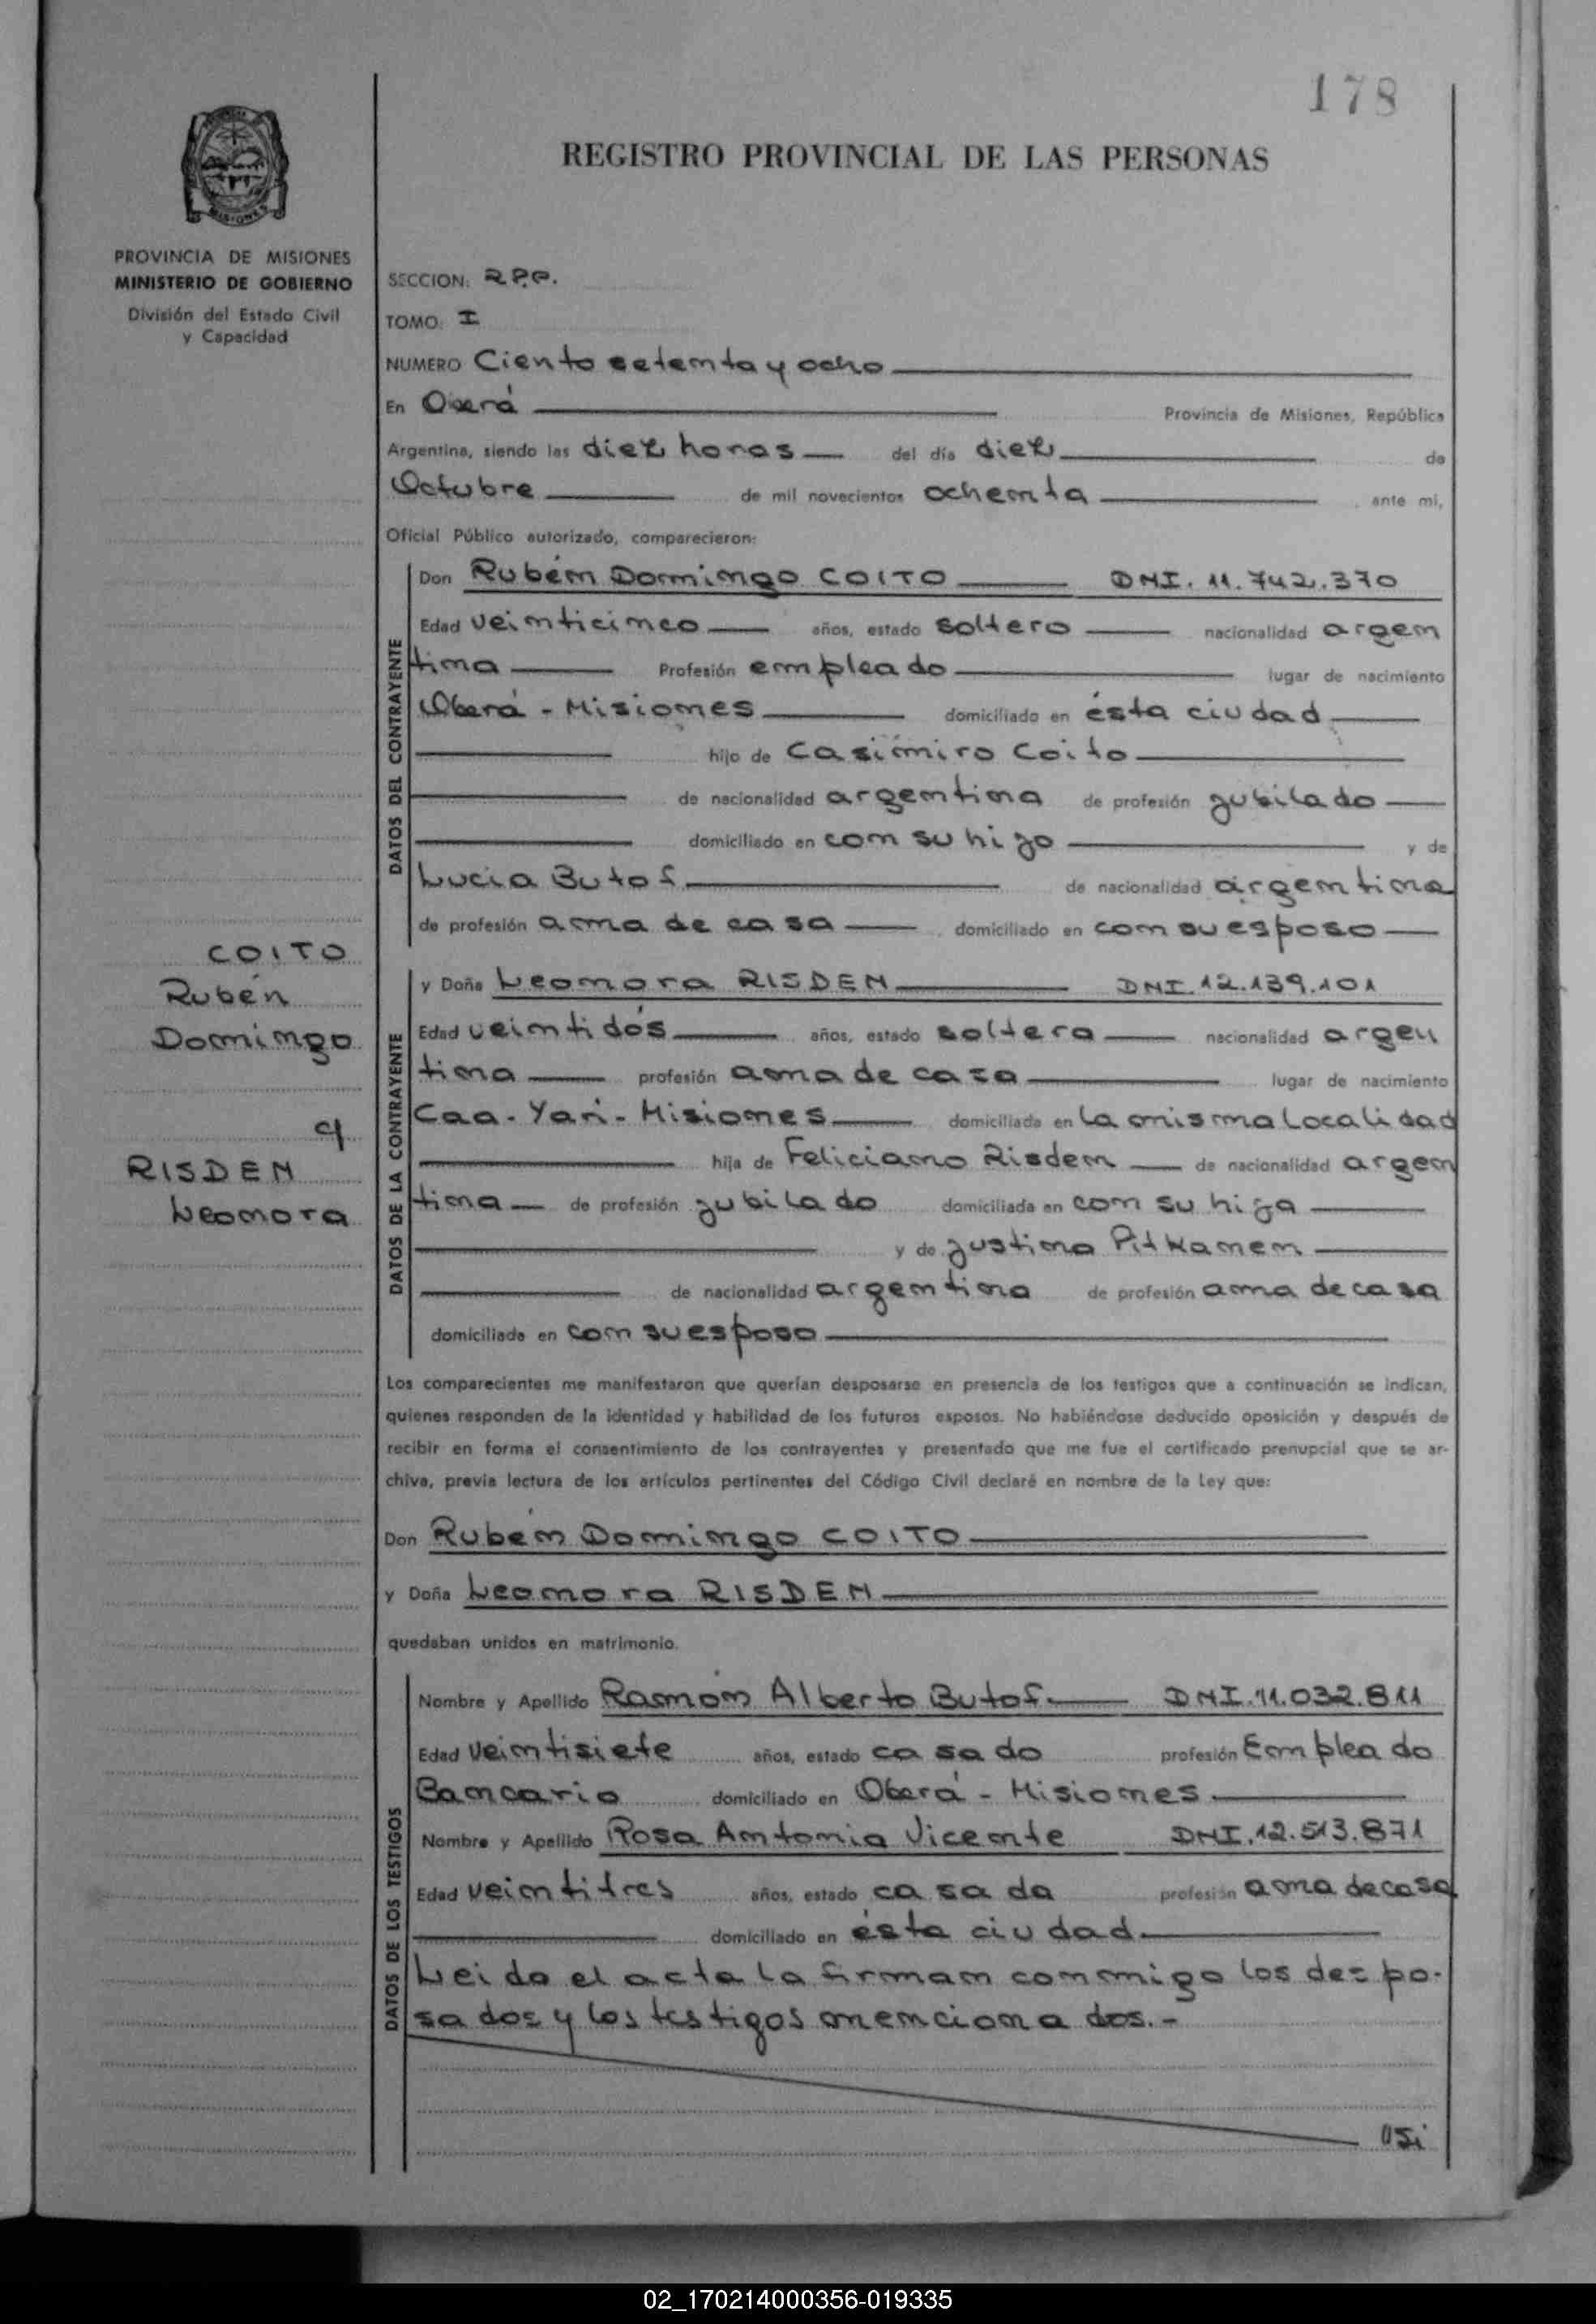 178
REGISTRO PROVINCIAL DE LAS PERSONAS
PROVINCIA DE MISIONES
MINISTERIO DE GOBIERNO
División del Estado Civil
y Capacidad
SECCION: R.P.P.
TOMO: I
NUMERO Ciento setenta y ocho
En Oberá Provincia de Misiones, República
Argentina, siendo las diez horas del día diez de
Octubre de mil novecientos ochenta ante mi,
Oficial Público autorizado, comparecieron:
DATOS DEL CONTRAYENTE
Don Rubén Domingo COITO DNI. 11.742.370
Edad veinticinco años, estado soltero nacionalidad argen
tina Profesión empleado lugar de nacimiento
Oberá - Misiones domiciliado en ésta ciudad
hijo de Casimiro Coito
de nacionalidad argentina de profesión jubilado
domiciliado en con su hijo y de
Lucia Butof de nacionalidad argentina
de profesión ama de casa domiciliado en con su esposo
COITO
Rubén
Domingo
c/
RISDEN
Leonora
DATOS DE LA CONTRAYENTE
y Doña Leonora RISDEN DNI. 12.139.101
Edad veintidós años, estado soltera nacionalidad argen
tina profesión ama de casa lugar de nacimiento
Caa-Yari-Misiones domiciliada en la misma localidad
hija de Feliciano Risden de nacionalidad argen
tina de profesión jubilado domiciliada en con su hija
y de Justina Pitkanen
de nacionalidad argentina de profesión ama de casa
domiciliada en con su esposo
Los comparecientes me manifestaron que querían desposarse en presencia de los testigos que a continuación se indican,
quienes responden de la identidad y habilidad de los futuros esposos. No habiéndose deducido oposición y después de
recibir en forma el consentimiento de los contrayentes y presentado que me fue el certificado prenupcial que se ar-
chiva, previa lectura de los artículos pertinentes del Código Civil declaré en nombre de la Ley que:
Don Rubén Domingo COITO
y Doña Leonora RISDEN
quedaban unidos en matrimonio.
DATOS DE LOS TESTIGOS
Nombre y Apellido Ramón Alberto Butof DNI. 11.032.811
Edad veintisiete años, estado casado profesión Empleado
Bancario domiciliado en Oberá - Misiones
Nombre y Apellido Rosa Antonia Vicente DNI. 12.513.871
Edad veintitres años, estado casada profesión ama de casa
domiciliado en ésta ciudad
Leido el acta la firman conmigo los despo-
sados y los testigos mencionados.-
02_170214000356-019335